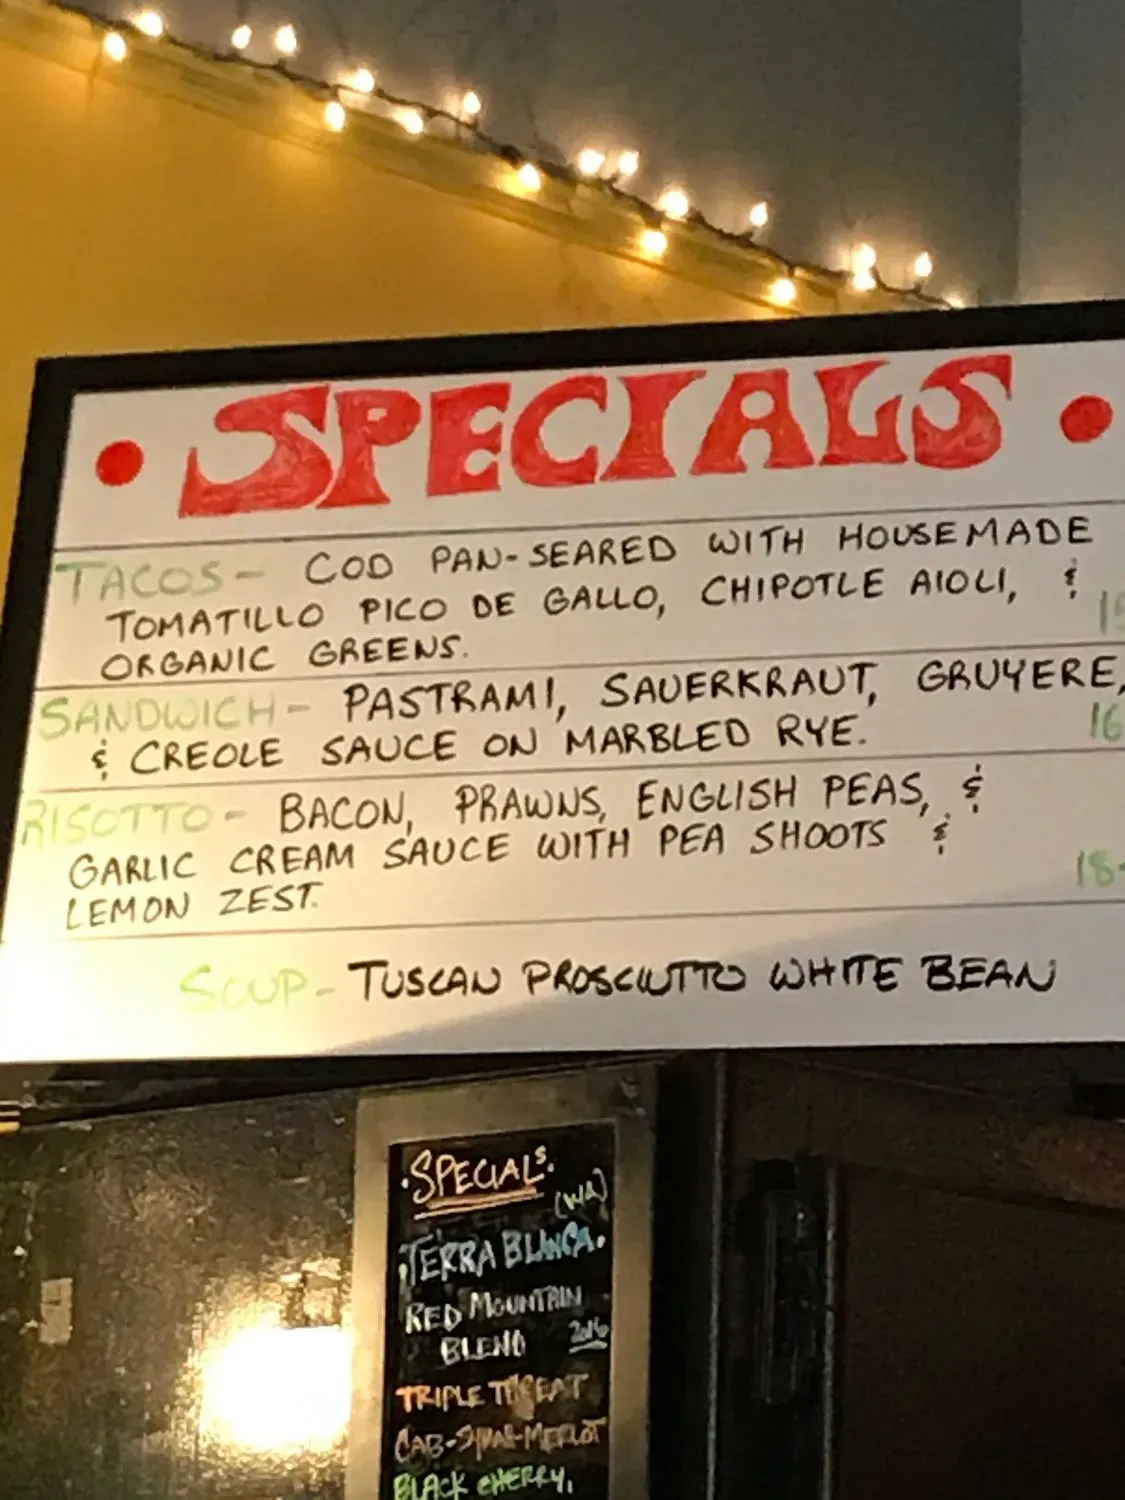 • SPECIALS •
TACOS - COD PAN-SEARED WITH HOUSEMADE
TOMATILLO PICO DE GALLO, CHIPOTLE AIOLI, &
ORGANIC GREENS.
SANDWICH - PASTRAMI, SAUERKRAUT, GRUYERE,
& CREOLE SAUCE ON MARBLED RYE. 16
RISOTTO - BACON, PRAWNS, ENGLISH PEAS, &
GARLIC CREAM SAUCE WITH PEA SHOOTS &
LEMON ZEST. 18-
SOUP - TUSCAN PROSCIUTTO WHITE BEAN
• SPECIALS.
(WA)
TERRA BLANCA.
RED MOUNTAIN
BLEND 2016
TRIPLE THREAT
CAB-SYRAH-MERLOT
BLACK CHERRY,